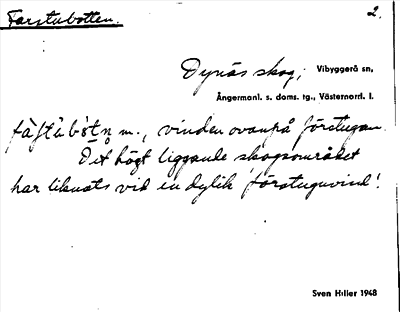 Farstubotten.
2.
Dynäs skog; Vibyggerå sn,
Ångermanl. s. doms. tg., Västernorrl. l.
m., vinden ovanpå förstugan.
Det högt liggande skogsområdet
har liknats vid en dylik 'förstuguvind'.
Sven Hiller 1948